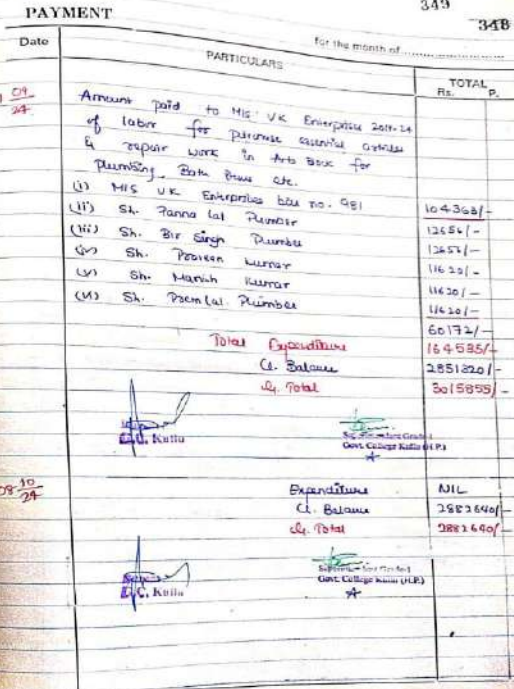 349
348
PAYMENT
for the month of
Date
PARTICULARS
TOTAL
Rs. P.
09
24
Amount paid to M/S VK Enterprises
of labor for purchase essential articles
& repair work in Arts Block for
Plumbing, Bath etc.
(i) M/S VK Enterprises bill no. 981 104363/-
(ii) Sh. Panna Lal Plumber 12656/-
(iii) Sh. Bir Singh Plumber 12656/-
(iv) Sh. Poovan Kumar 11620/-
(v) Sh. Manish Kumar 11620/-
(vi) Sh. Poem Lal. Plumber 11620/-
60172/-
Total Expenditure 164535/-
Cl. Balance 2851320/-
G. Total 3015855/-
G.C. Kullu
Govt. College Kullu (H.P.)
08-10
24
Expenditure NIL
Cl. Balance 2882640/-
G. Total 2882640/-
G.C. Kullu
Govt. College Kullu (H.P.)